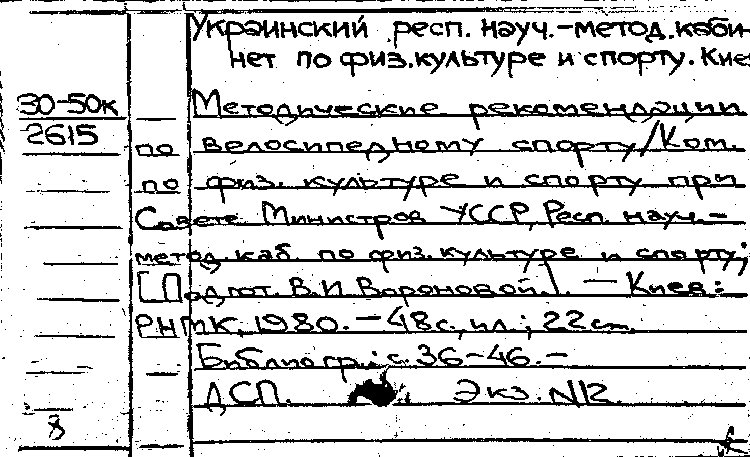 Украинский респ. науч.-метод. каби-
нет по физ.культуре и спорту. Киев
30-50к
Методические рекомендации
2615
по велосипедному спорту/Ком.
по физ. культуре и спорту при
Совете Министров УССР, Респ. науч.-
метод. каб. по физ. культуре и спорту;
[Подгот. В.И. Вороновой]. — Киев:
РНМК, 1980. — 48с., ил.; 22 см.
Библиогр.: с. 36-46. —
ДСП. Экз. N12
8